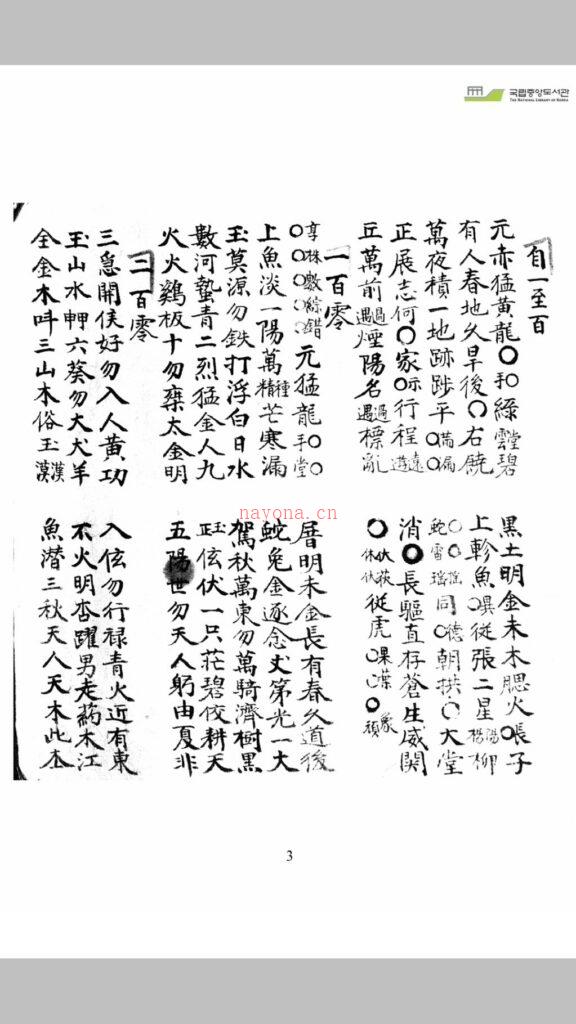 국립중앙도서관
THE NATIONAL LIBRARY OF KOREA
自一至百
元赤猛黃龍〇手綠雲堂碧
有人春地久旱後〇右饒
萬夜積一地跡踄平〇滿漏
正展志何〇家示行程遠遊
丘萬前過遇煙陽名過遇標亂
黑土明金未木腮火〇張子
上軫魚〇異從張二星陽楊柳
同〇德朝拱〇大堂
消〇長驅直存蒼生威関
從虎〇果葉〇
一百零
亨林數綜錯元猛龍〇手〇堂
上魚淡一陽萬種精芒寒漏
玉莫源勿鉄打浮白日水
數河蟄青二烈猛金人九
火火鷄板十勿棄太金明
厝明未金長有春久道後
蛇兔金逐念丈第光一大
駕秋萬東勿萬騎濟樹黑
伏一只茫碧佼耕天
五陽世勿天人躬由夏非
二百零
三急開侯好勿入人黄功
玉山水輧六葵勿大犬羊
全金木呌三山木俗玉漢漠
入伭勿行禄青火近有東
不火明杏躍男走藥木江
魚潛三秋天人天木此
nayona.cn
3